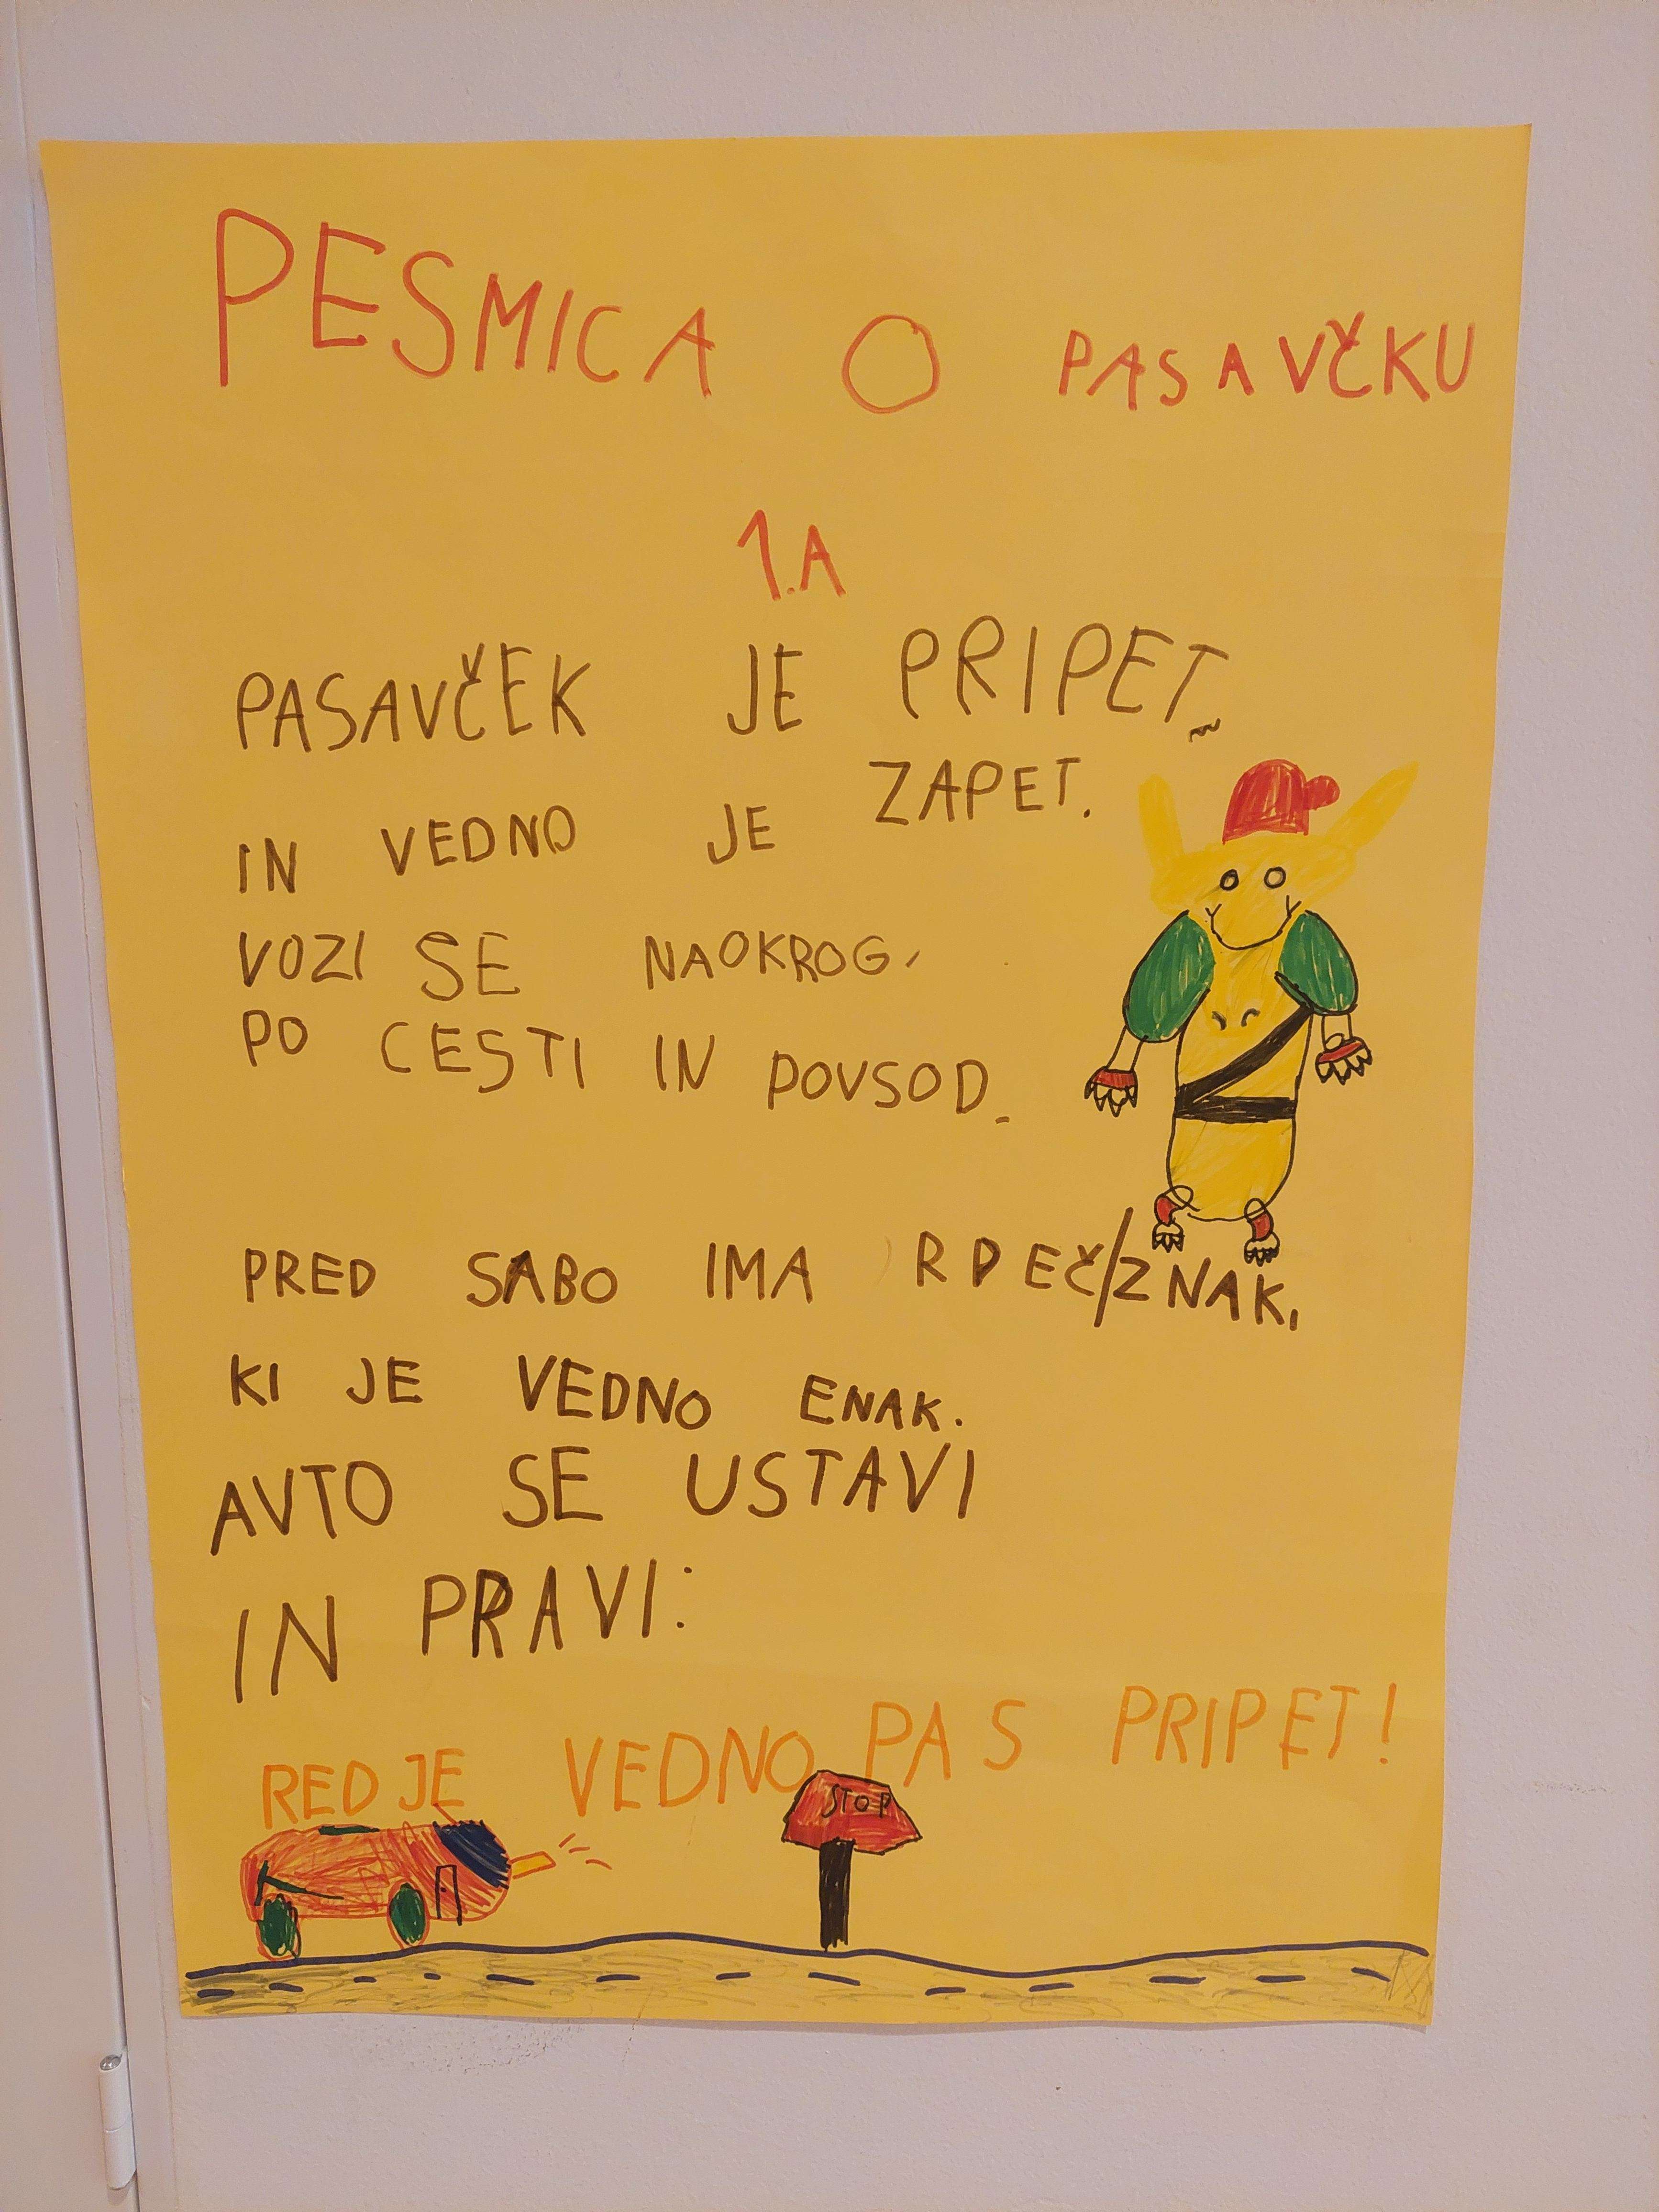 PESMICA O PASAVČKU
1.A
PASAVČEK JE PRIPET,
IN VEDNO JE ZAPET.
VOZI SE NAOKROG,
PO CESTI IN POVSOD.
PRED SABO IMA RDEČ/ZNAK,
KI JE VEDNO ENAK.
AVTO SE USTAVI
IN PRAVI:
RED JE VEDNO PAS PRIPET!
STOP